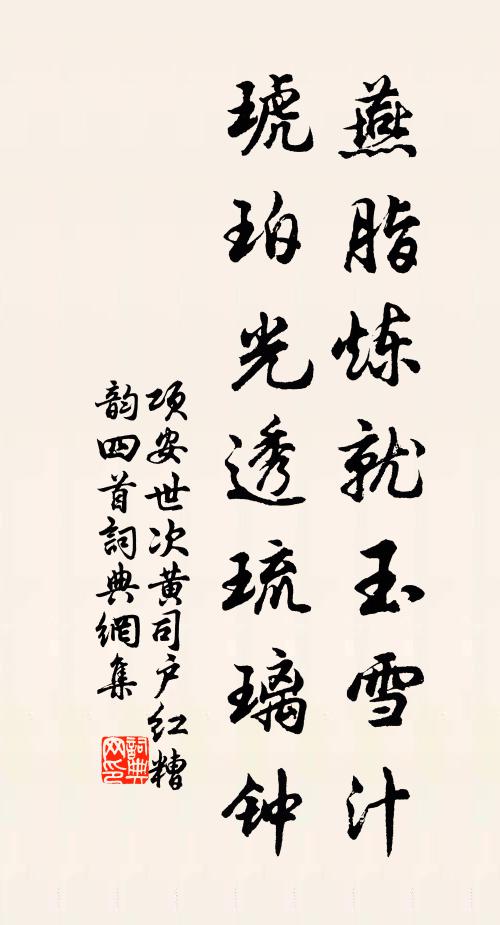 燕脂炼就玉雪汁
琥珀光透琉璃钟
项安世次黄司户红糟
韵四首詞典網集
詞典
网印